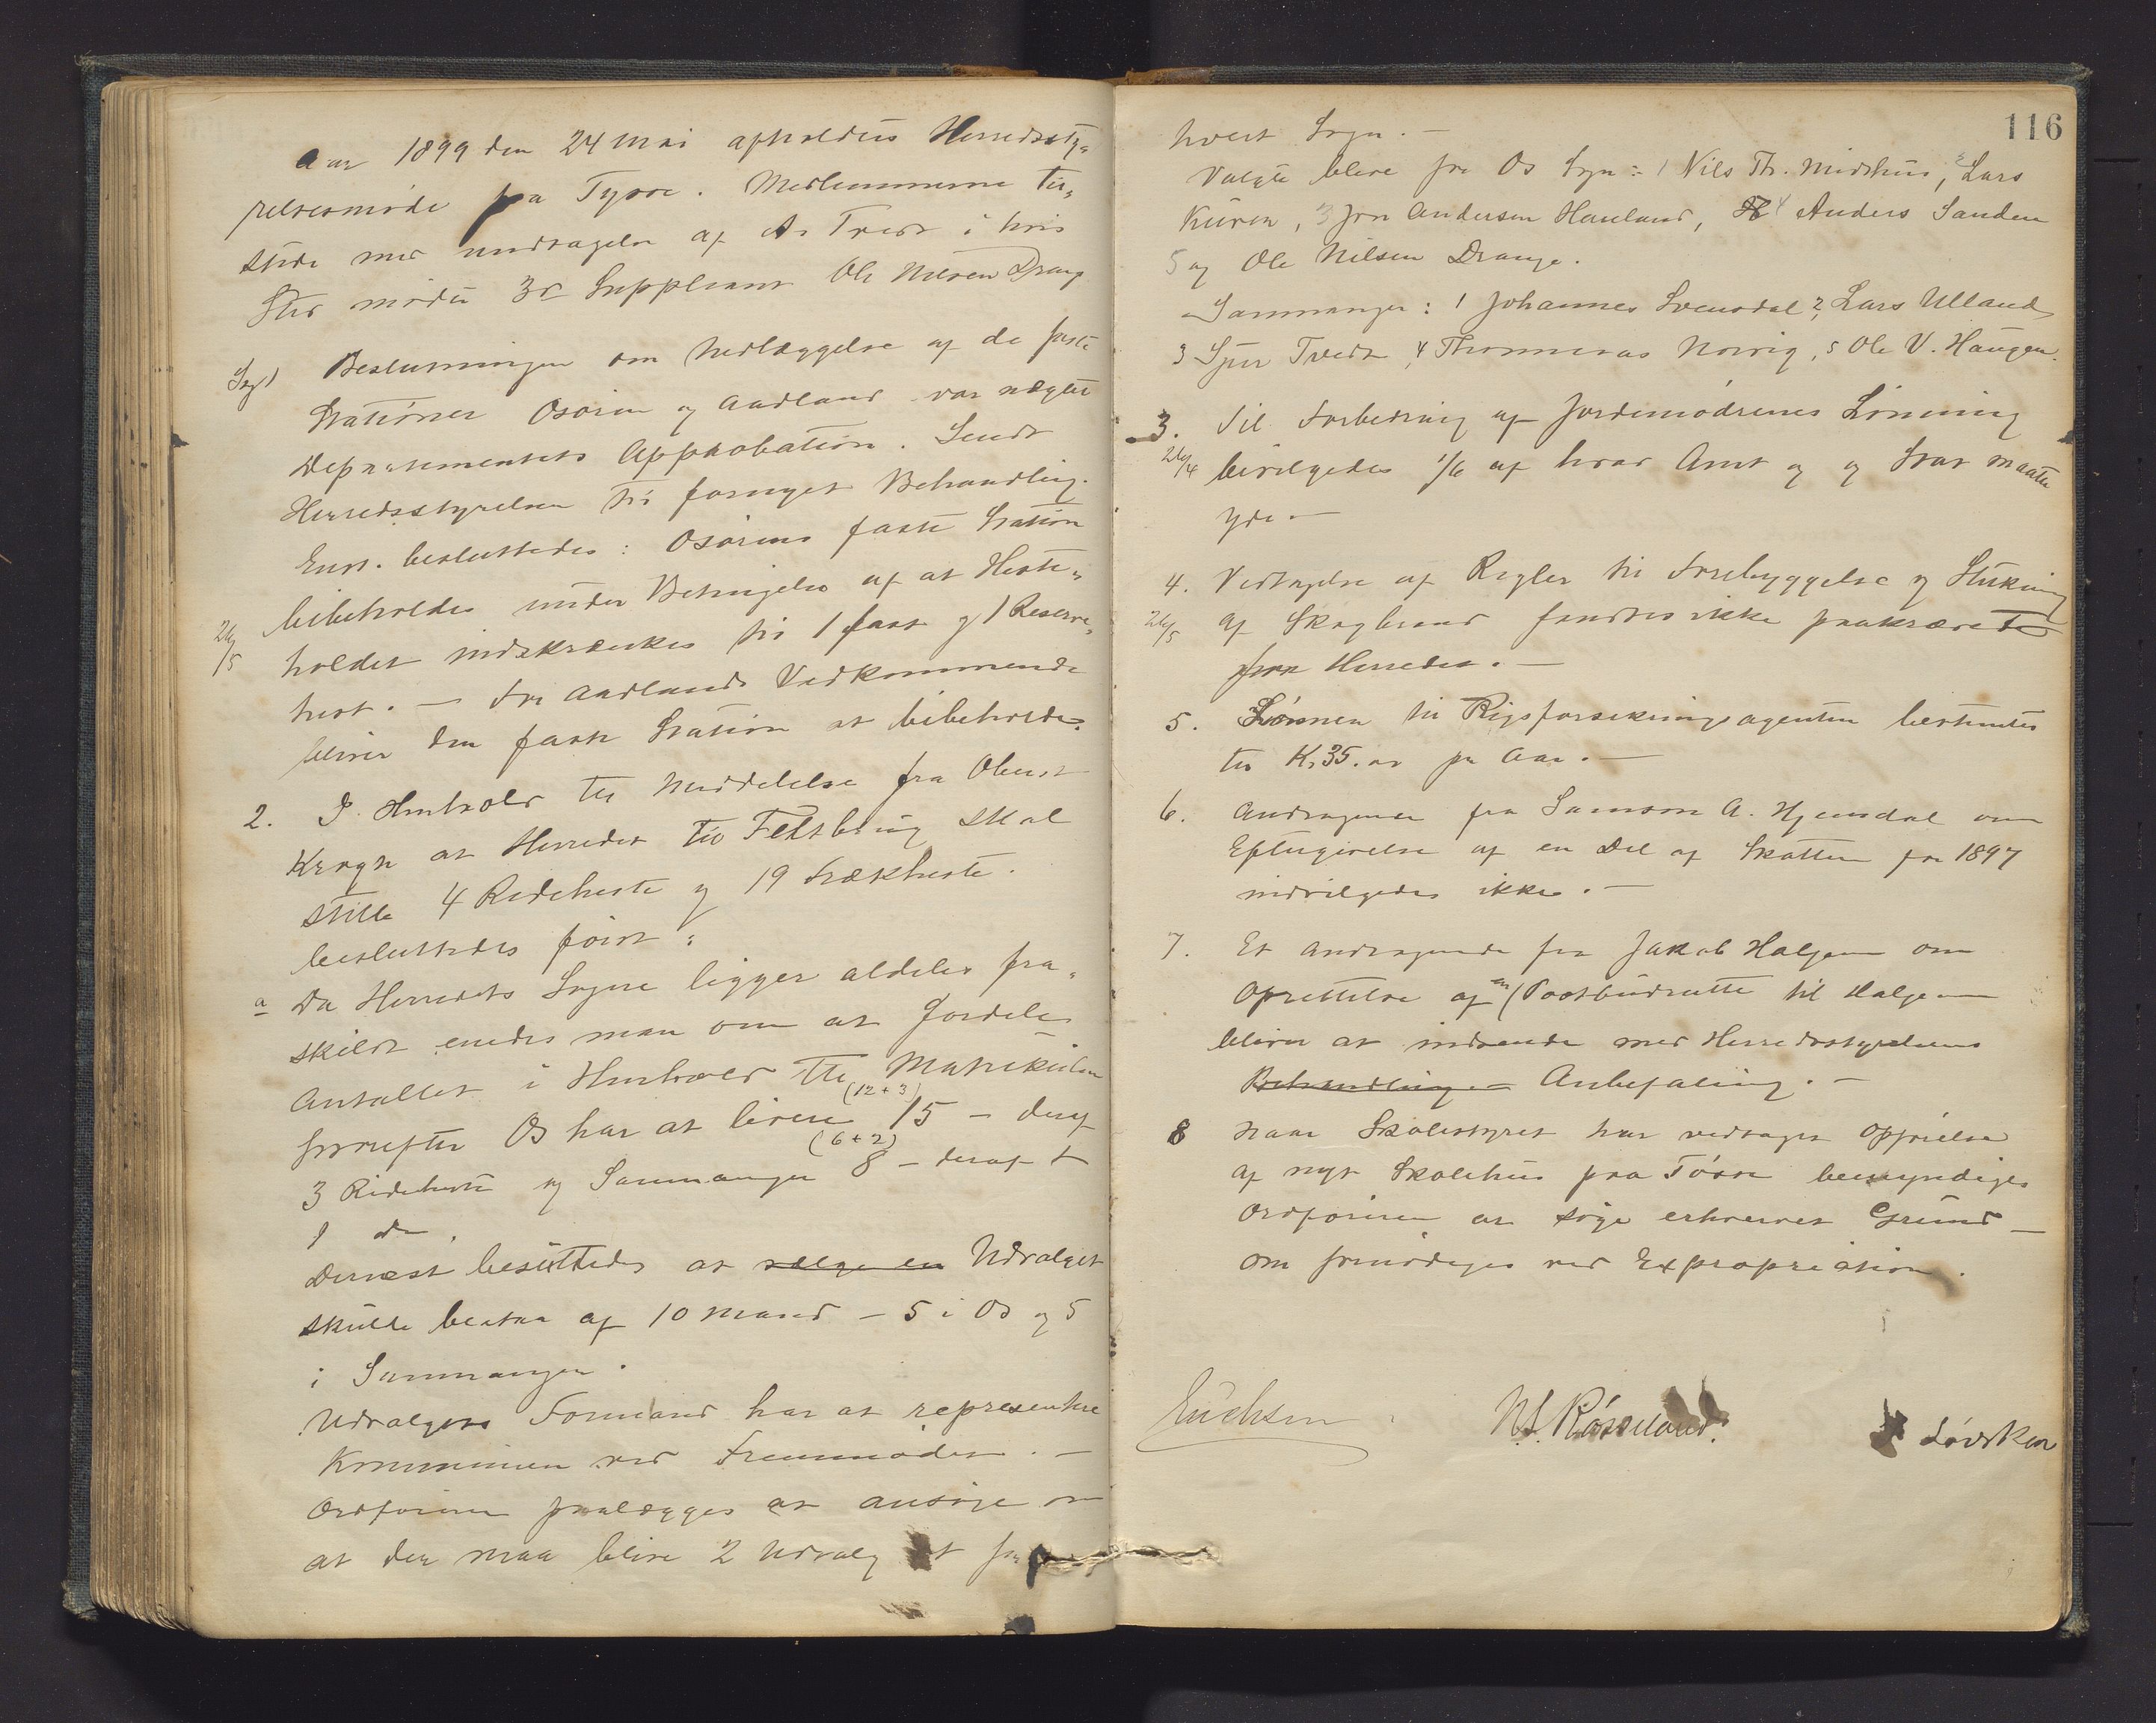 Aar 1899 den 24 Mai afholdtes Herredssty-
relsesmøde paa Tysse. Medlemmerne til-
stede med undtagelse af A. Tvedt i hvis
Sted mødte 3die Suppleant Ole Nilsen Drange
Sag 1 Beslutningen om Nedlæggelse af de faste
Stationer Osøren og Aadland var nægtet
Departementets Approbation. Sendt
Herredsstyrelsen til fornyet Behandling.
Enst. besluttedes: Osørens faste Station
bibeholdes under Betingelse af at Heste-
26/5 holdet indskrænkes til 1 fast og 1 Reserve-
hest. – For Aadlands Vedkommende
bliver den faste Station at bibeholde.
2. I Henhold til Meddelelse fra Oberst
Krogh at Herredet til Feltbrug skal
stille 4 Rideheste og 19 Trækheste.
besluttedes først:
a Da Herredets Sogne ligger aldeles fra-
skildt enedes man om at fordele
Antallet i Henhold til Matrikulen
(12+3)
hvorefter Os har at levere 15 – deraf
(6+2)
3 Rideheste og Samnanger 8 – deraf
1 do.
Dernæst besluttedes at vælge en Udvalget
skulle bestaa af 10 Mand – 5 i Os og 5
i Samnanger.
Udvalgets Formand har at repræsentere
Kommunen ved Fremmødet. –
Ordføreren paalægges at ansøge om
at der maa blive 2 Udvalg et for
116
hvert Sogn. –
Valgte bleve for Os Sogn: 1 Nils Th. Midthus, 2 Lars
Kuven, 3 Jon Andersen Hauland, 4 Anders Sanden
5 og Ole Nilsen Drange.
Samnanger: 1 Johannes Svensdal 2, Lars Ulland
3 Sjur Tvedt, 4 Thommeras Norvig, 5 Ole V. Haugen.
3. Til Forbedring af Jordemødrenes Lønning
26/4 bevilgedes 1/6 af hvad Amt og og Stat maatte
yde. –
4. Vedtagelse af Regler til Forebyggelse og Slukning
26/5 af Skogbrand fandtes ikke paakrævet
for Herredet. –
5. Lønnen til Rigsforsikringsagenten bestemtes
til Kr 35.00 pr Aar. –
6. Andragende fra Samson A. Hjemdal om
Eftergivelse af en Del af Skatten for 1897
indvilgedes ikke. –
7. Et Andragende fra Jakob Haljem om
Oprettelse af en Postbudrutte til Haljem
bliver at indsende med Herredsstyrelsens
Behandling. – Anbefaling. –
8 Naar Skolestyret har vedtaget Opførelse
af nyt Skolehus paa Tøsse bemyndiges
Ordføreren at søge erhvervet Grund –
om fornødiges ved Expropriation.
Erichsen N. L. Røseland. Løvsken